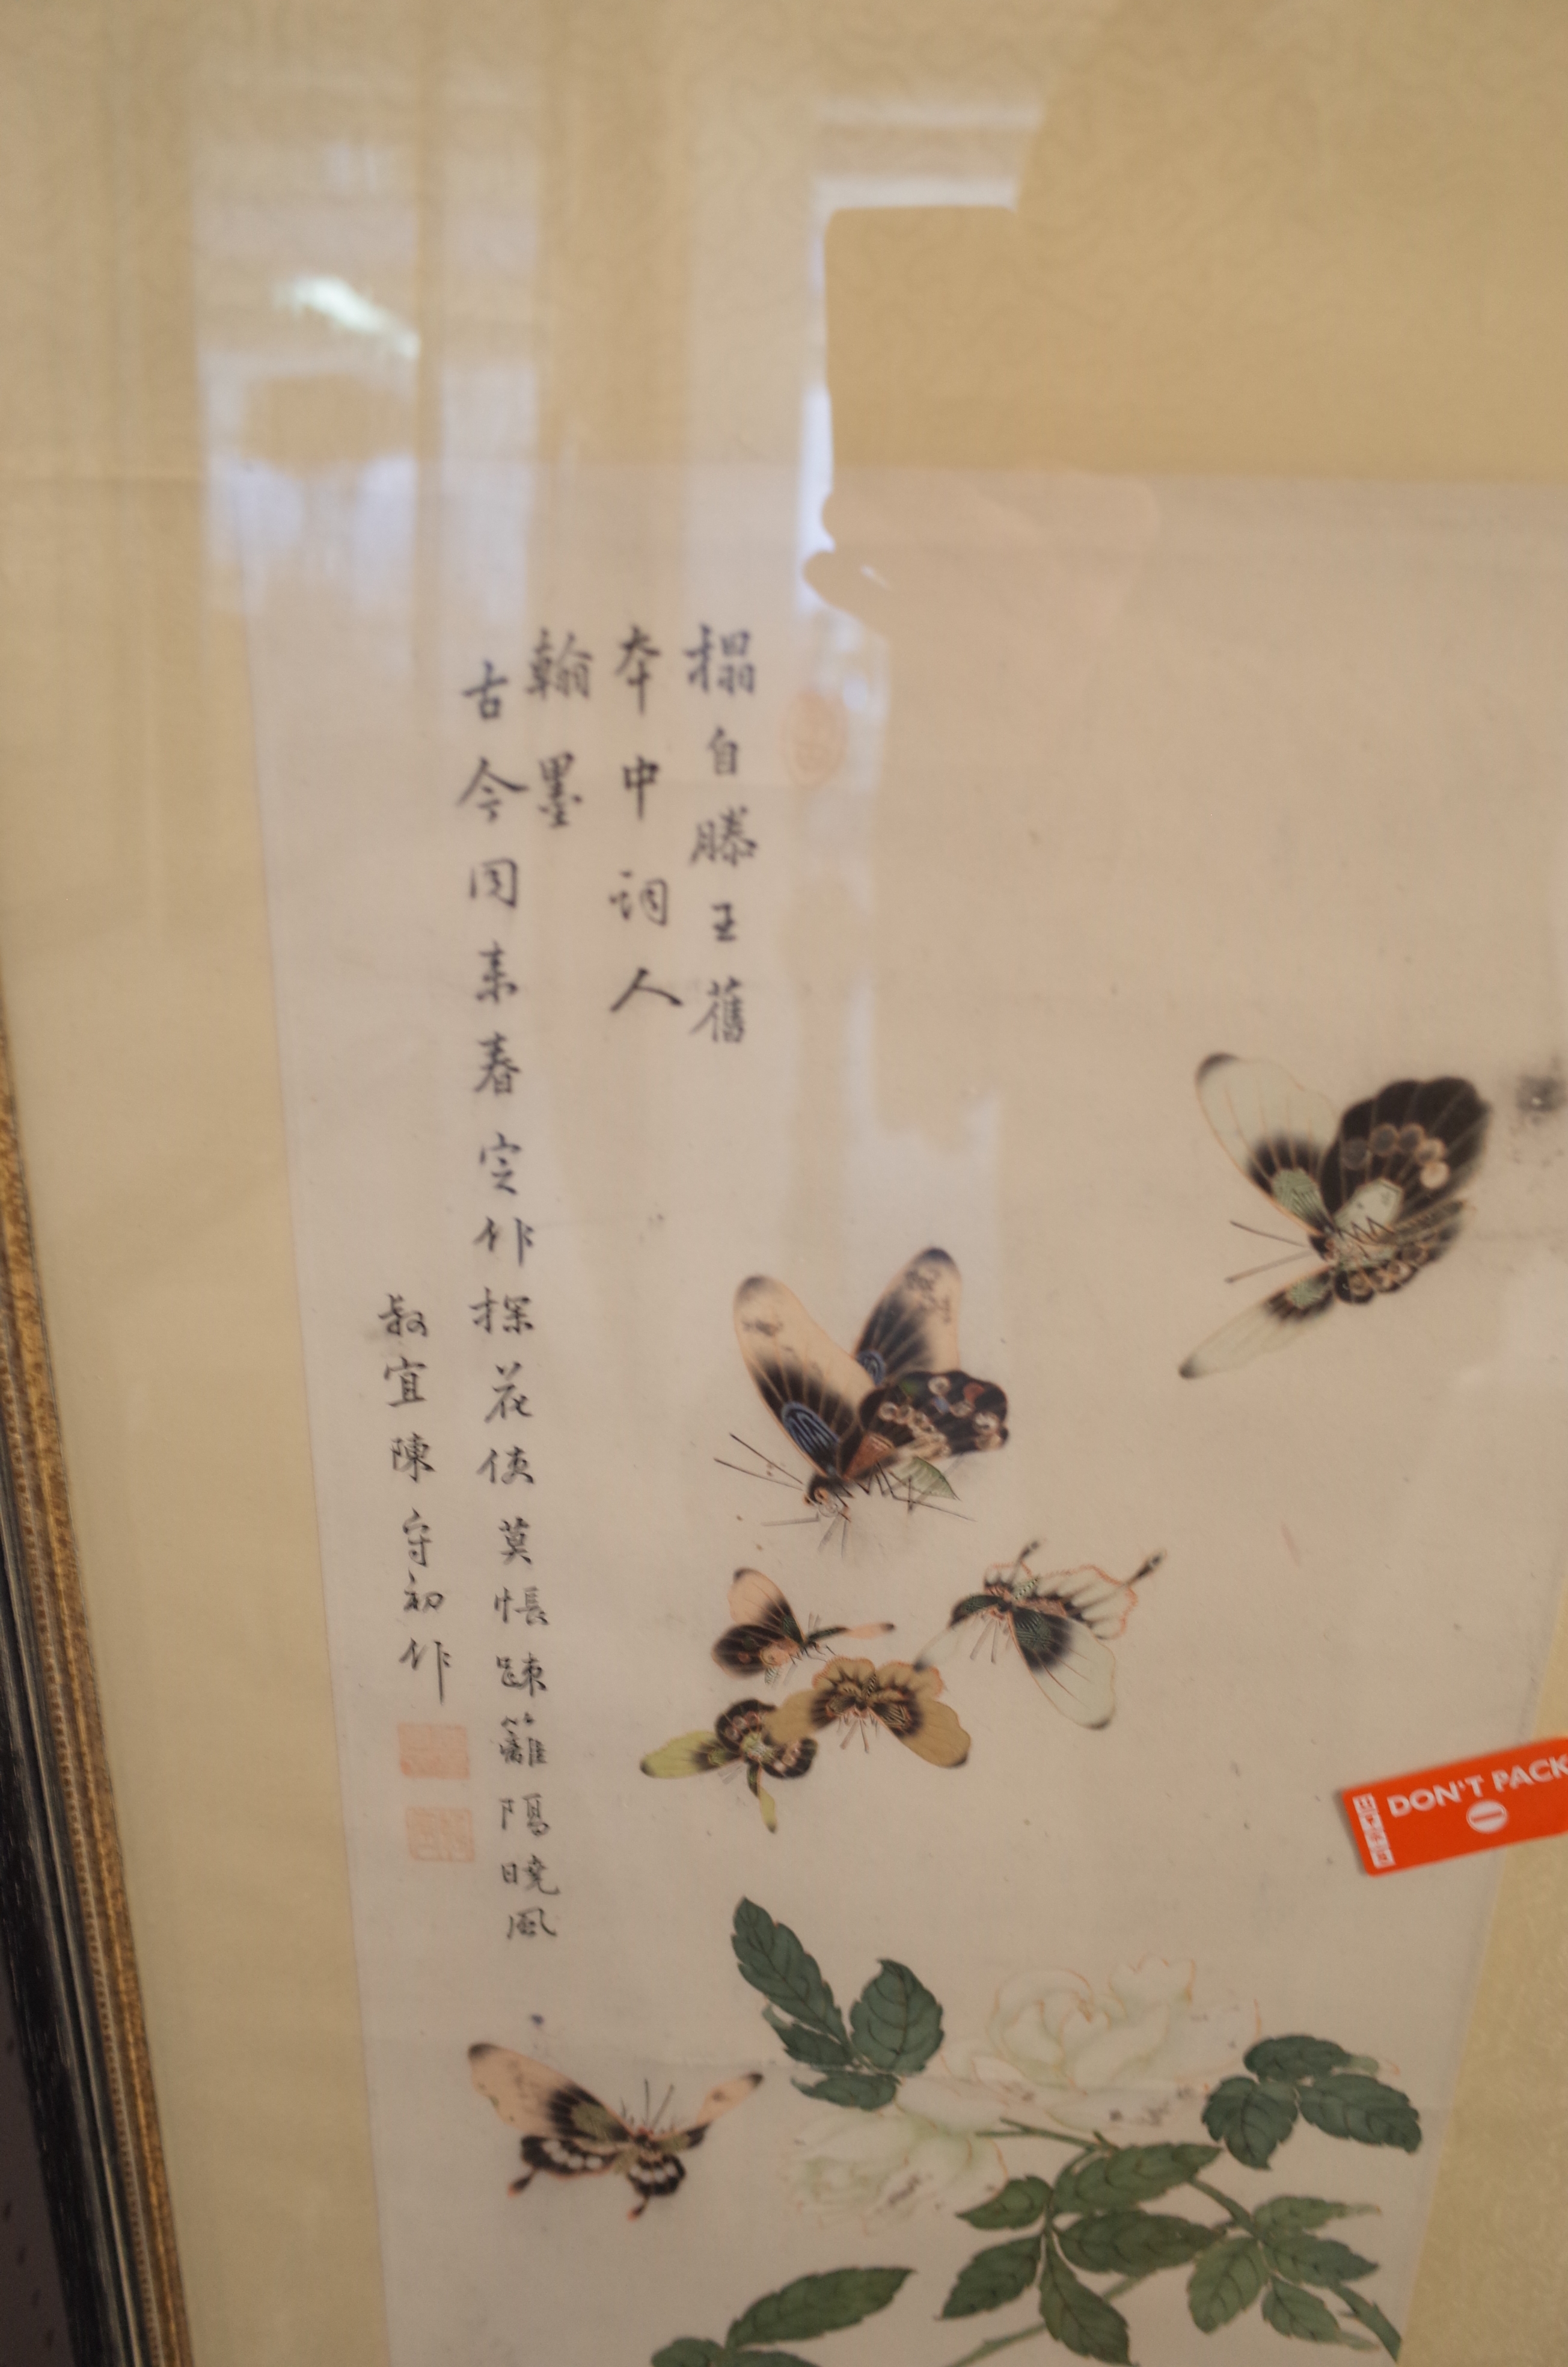 搨自滕王舊
夲中詞人
翰墨
古今同來春定作探花使莫悵踈籬隔曉風
叔宜陳守初作
DON'T PACK